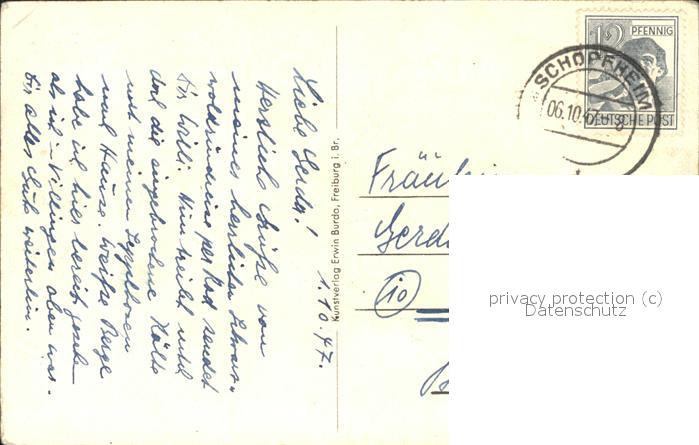 1.10.47.
Liebe Gerda!
Herzliche Grüße von
meiner herrlichen Schwarz-
waldrundreise per Rad sendet
Dir Willi. Nun treibt mich
doch die eingebrochene Kälte
mit meinen
nach Hause. Weiße Berge
habe ich hier bereits gesehen
als ich in Villingen oben war.
Dir alles Gute weiterhin.
Kunstverlag Erwin Burda, Freiburg i. Br.
12 PFENNIG
DEUTSCHE POST
SCHOPFHEIM
06.10.47
Fräul
Gerd
10
privacy protection (c)
Datenschutz